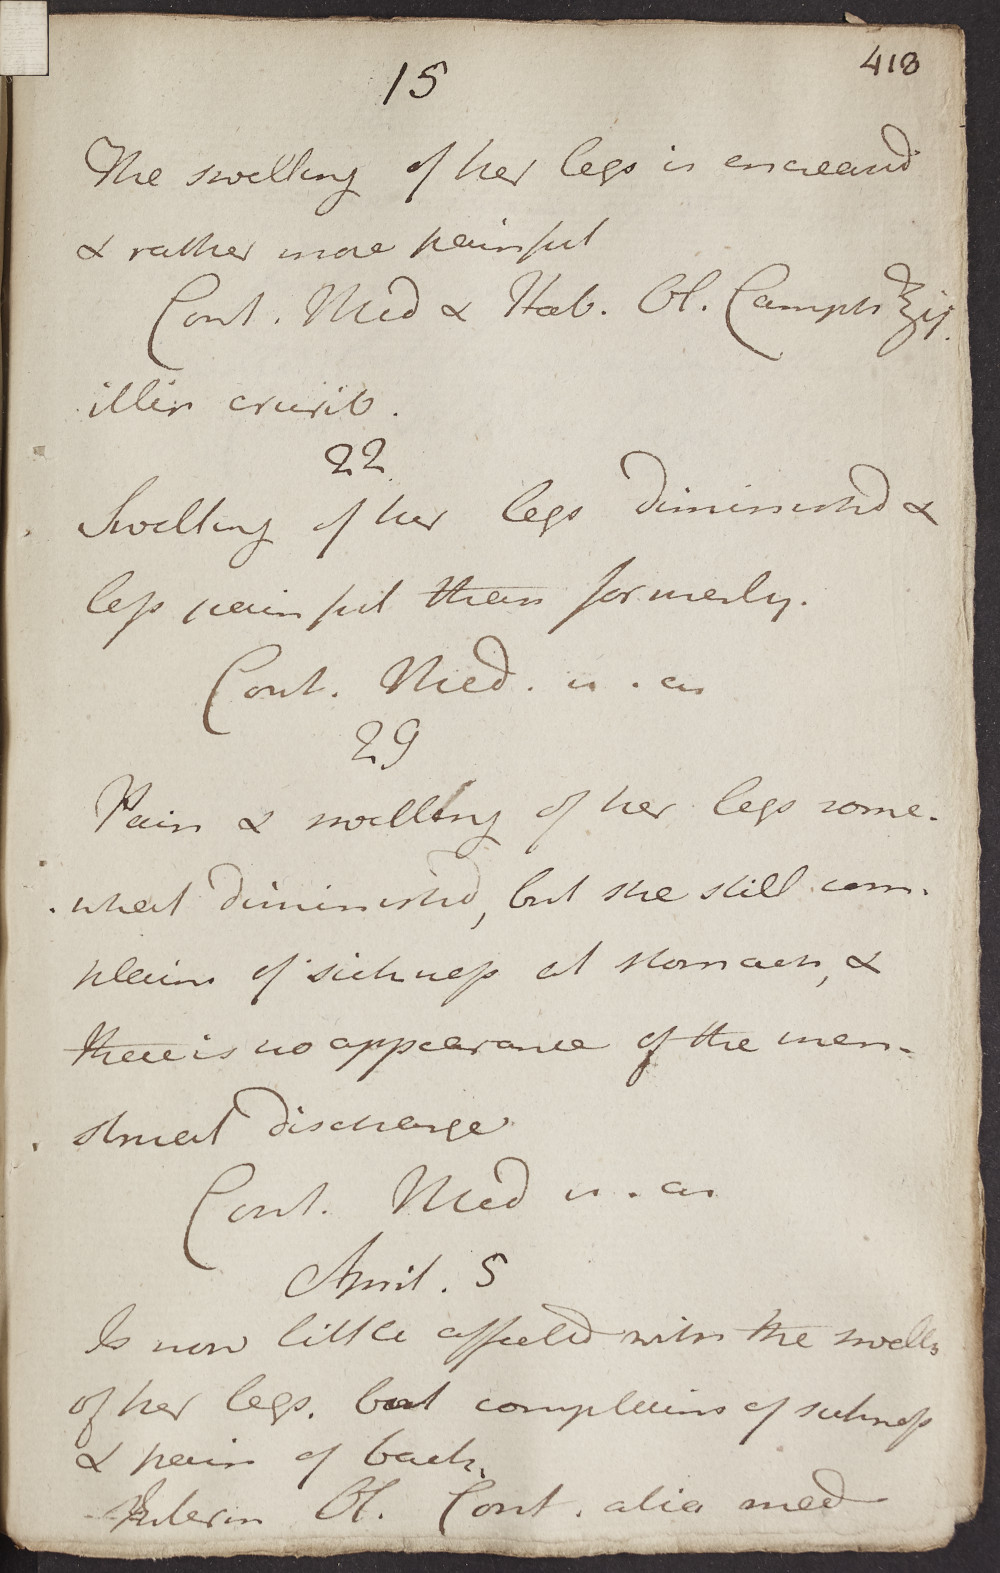 418
15
The swelling of her legs is encreasd
& rather more painful
Cont. Med & Hab. Ol. Camph ℥ij.
illin crurib.
22
Swelling of her legs diminishd &
less painful than formerly.
Cont. Med. u. a
29
Pain & swelling of her legs some-
what diminishd, but she still com-
plains of sickness at stomach, &
there is no appearance of the men-
strual discharge
Cont. Med u. a
April. 5
Is now little affected with the swellg
of her legs. but complains of sickness
& pain of back.
Ol. Cont. alia med